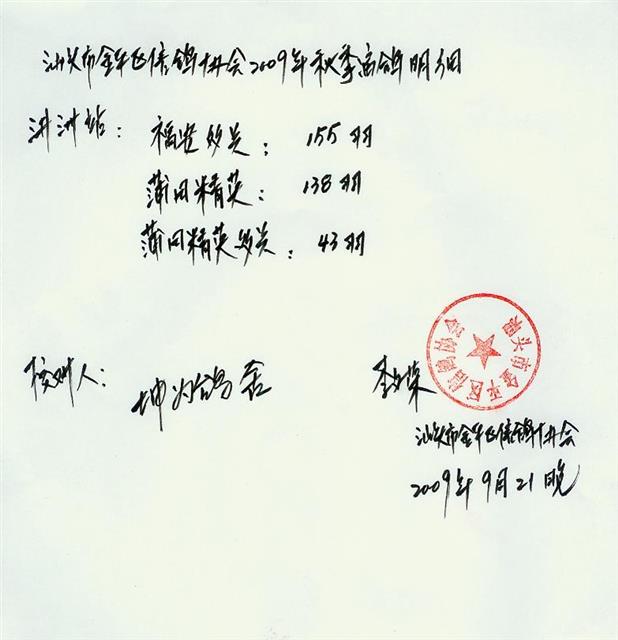 汕头市金平区信鸽协会2009年秋季寄鸽明细
漳州站：福建多关：155羽
莆田精英：138羽
莆田精英多关：43羽
核对人：
汕头市金平区信鸽协会
汕头市金平区信鸽协会
2009年9月21晚